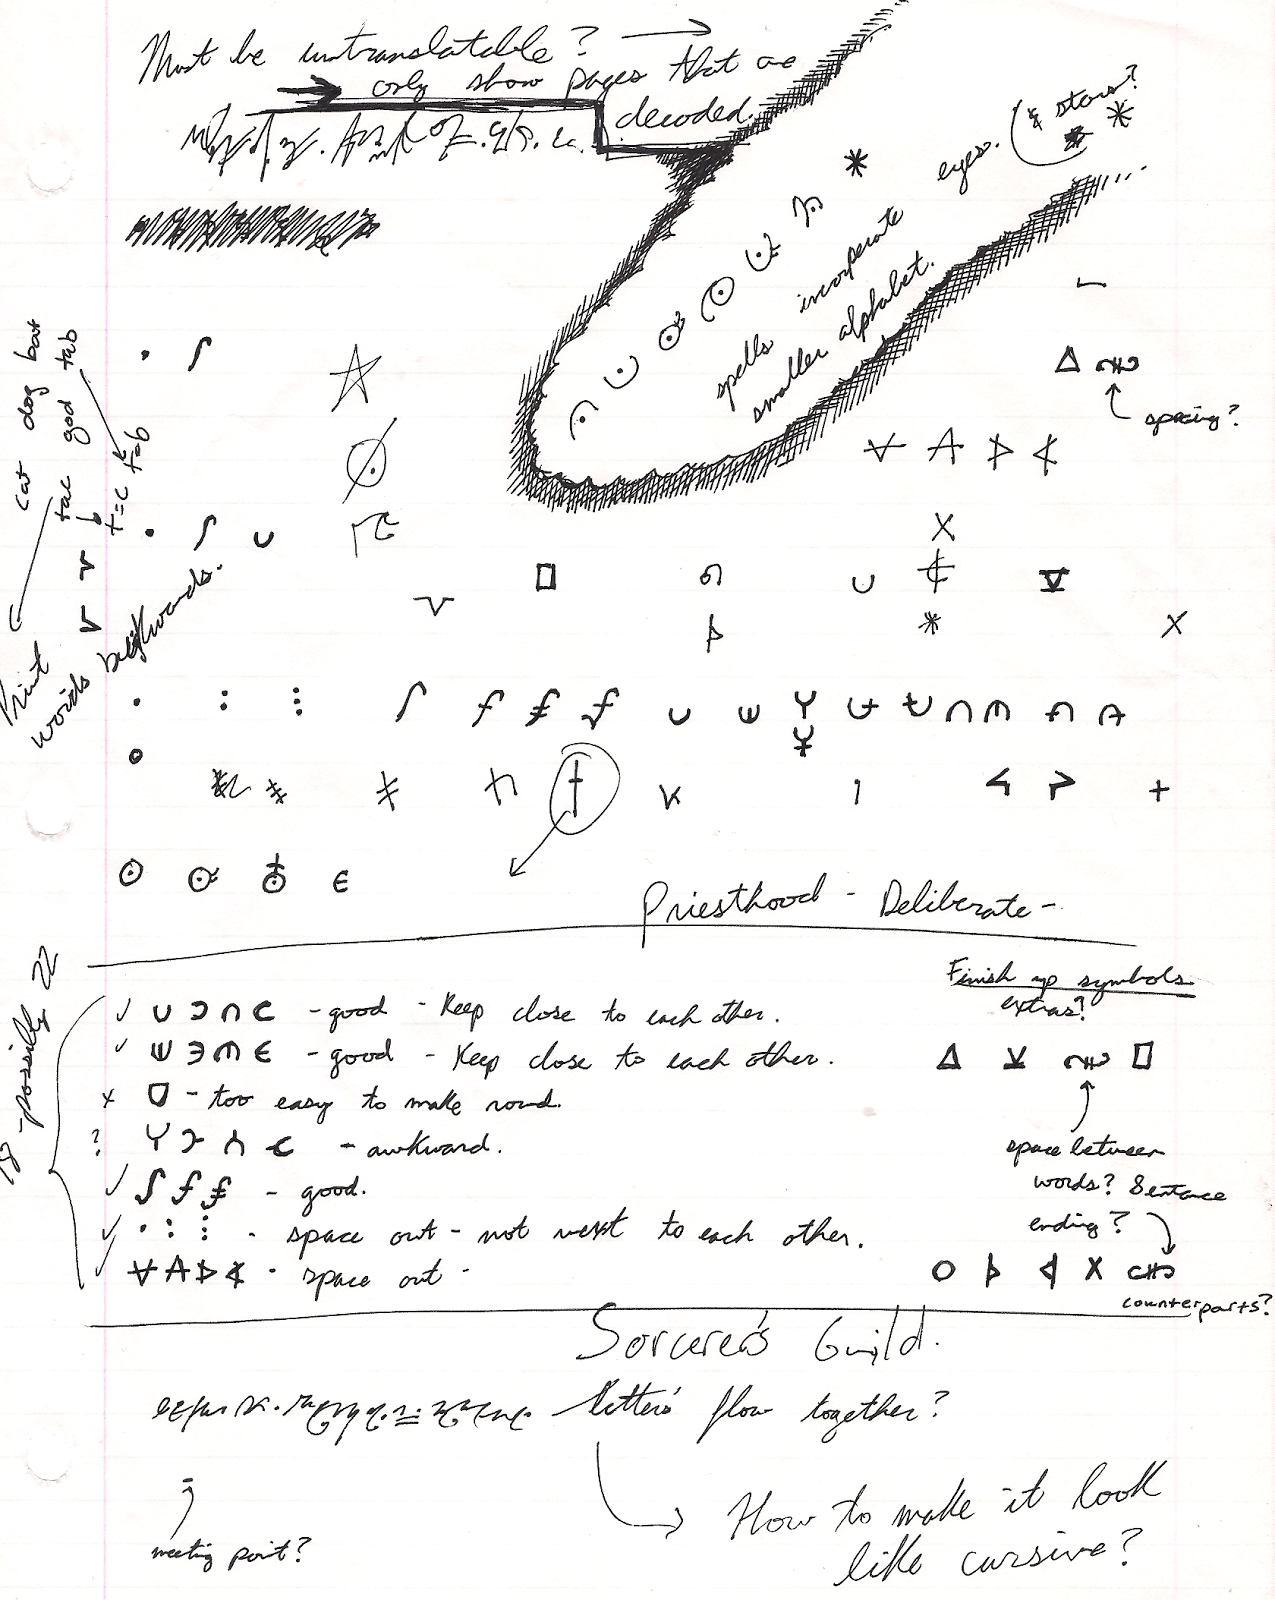 Must be untranslatable? →
only show pages that are
decoded.
eyes. & stars?
spells incorperate
smaller alphabet.
spacing?
cat dog bat
tac god tab
t=c tab
Print
words backwards.
Priesthood - Deliberate -
18 -possibly 22
Finish up symbols
extras?
✓ - good - Keep close to each other.
✓ - good - Keep close to each other.
x - too easy to make round.
? - awkward.
✓ - good.
✓ - space out - not next to each other.
✓ - space out -
space between
words? Sentance
ending?
counterparts?
Sorcerer's Guild.
letter's flow together?
meeting point?
How to make it look
like cursive?